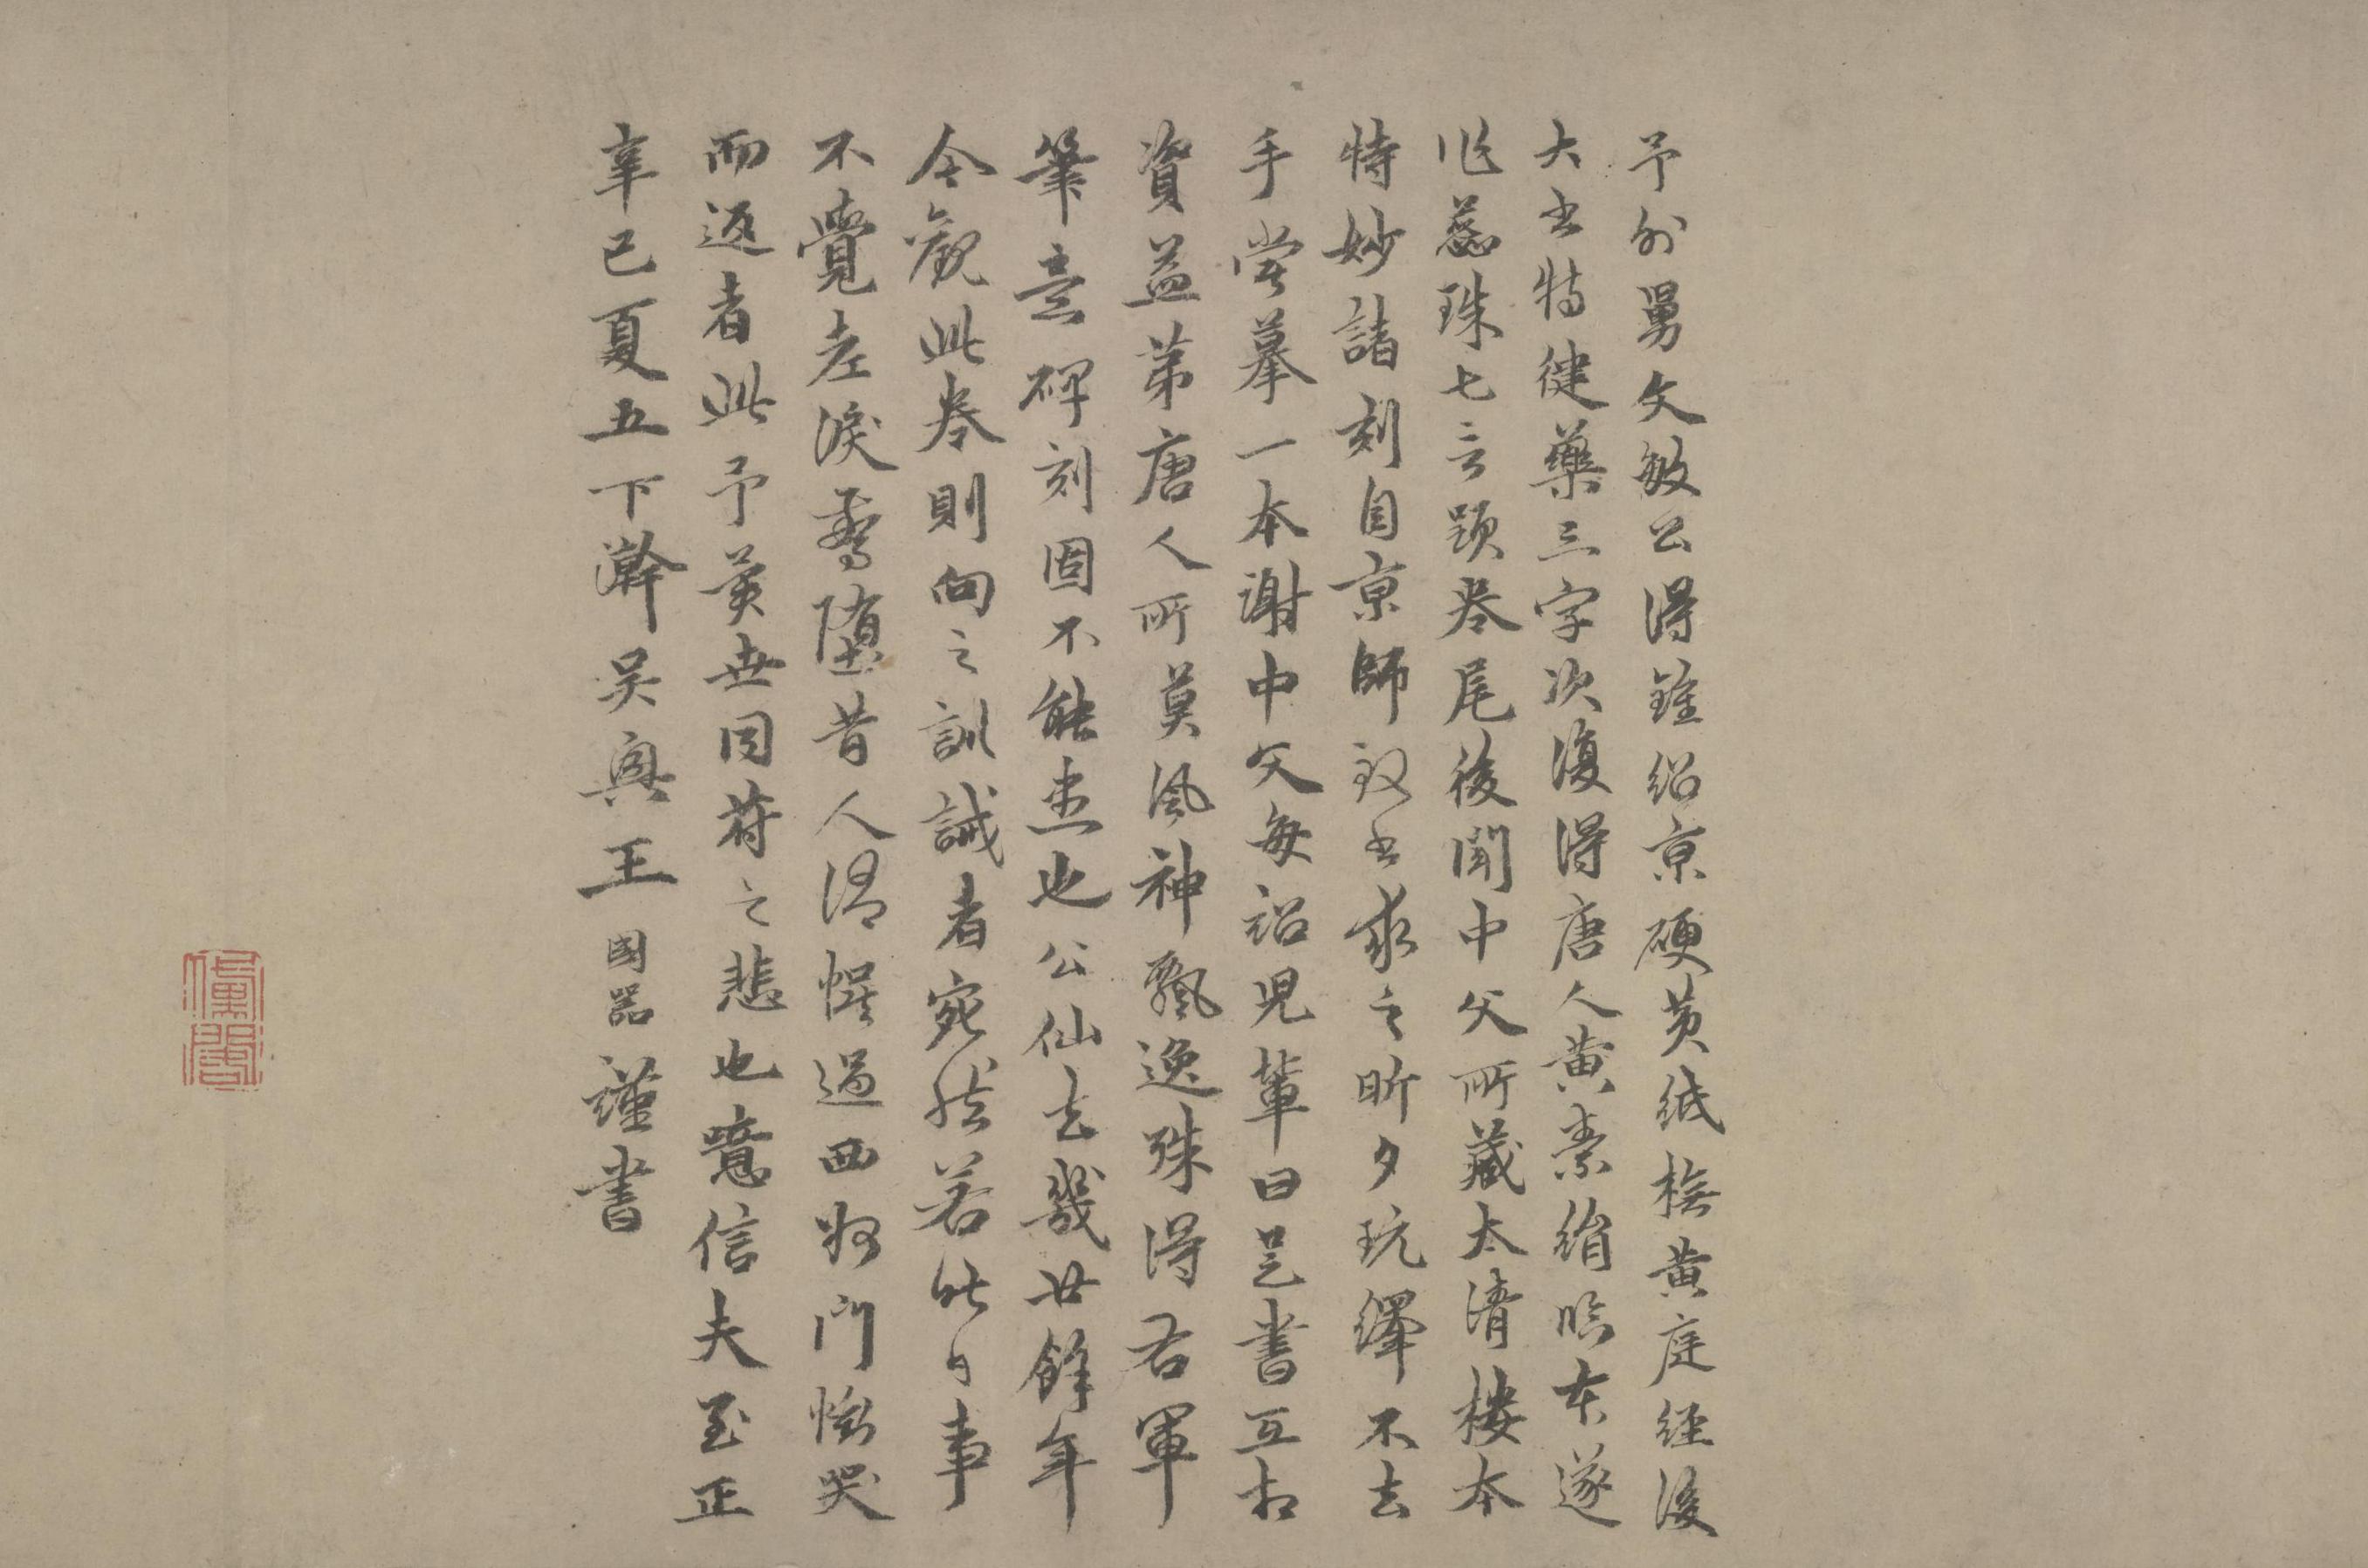 予外舅文敏公得鍾紹京硬黃紙橅黃庭經後
大書特健藥三字次復得唐人黃素絹臨本遂
作蕊珠七言題卷尾後聞中父所藏太清樓本
特妙諸刻自京師致書求之昕夕玩繹不去
手嘗摹一本謝中父每詔兒輩曰是書互相
資益第唐人所莫風神飄逸殊得右軍
筆意碑刻固不能盡也公仙去幾廿餘年
今觀此卷則向之訓誡者宛然若昨日事
不覺老淚雪墮昔人酒惺過西州門慟哭
而返者此予異世同符之悲也噫信夫至正
辛巳夏五下澣吳興王國器謹書